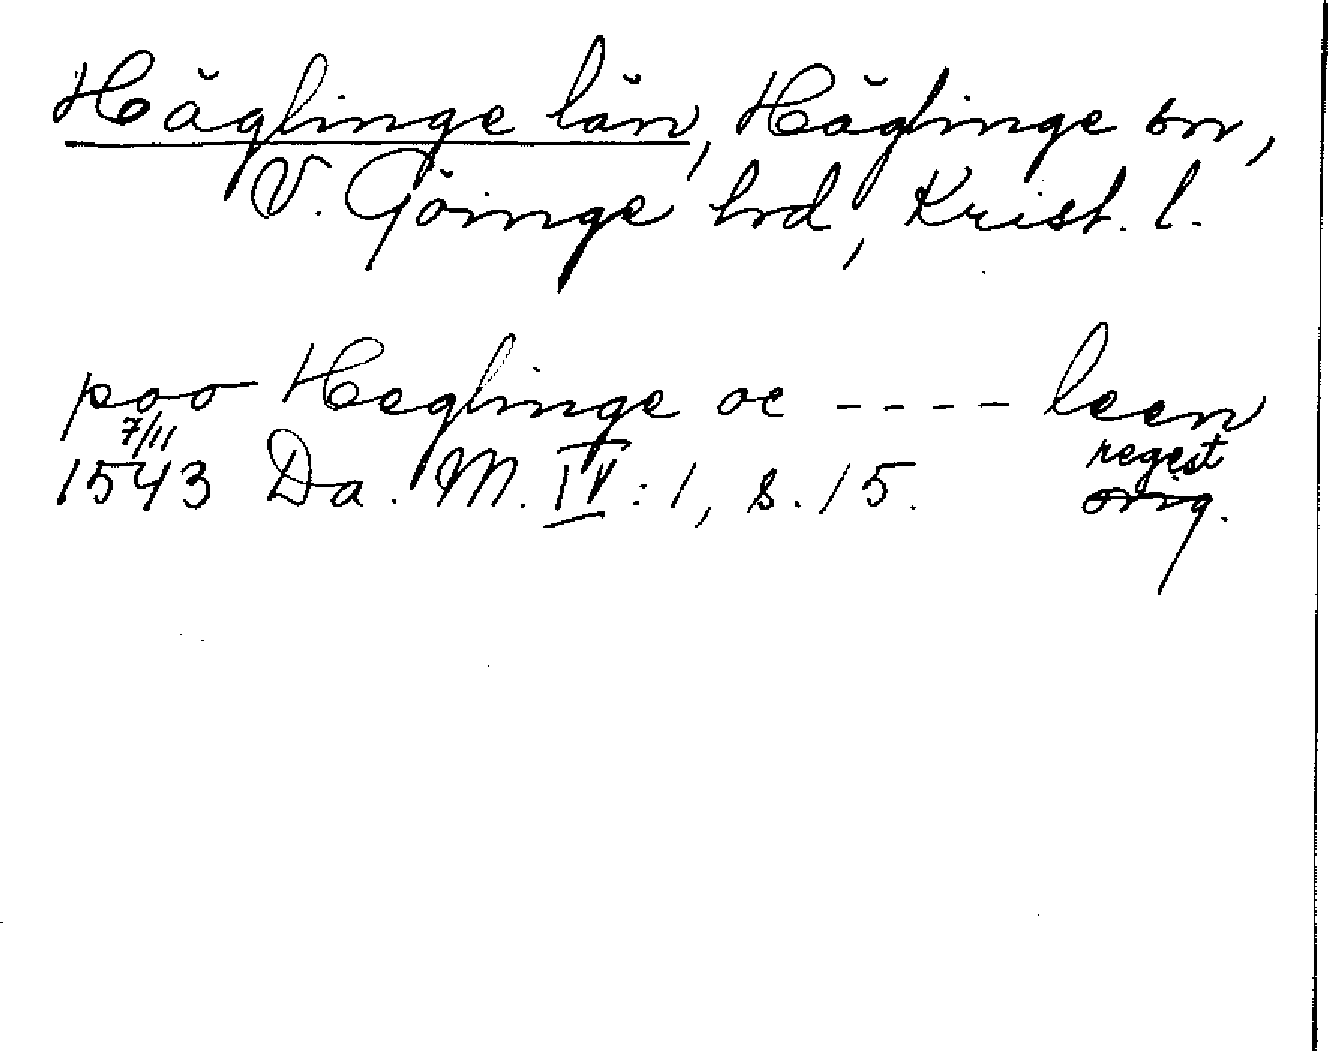 Häglinge län, Häglinge sn,
V. Göinge hrd, Krist. l.
poo Heglinge oc ---- leen
7/11
1543 Da. M. IV:1, s. 15. regest
orig.